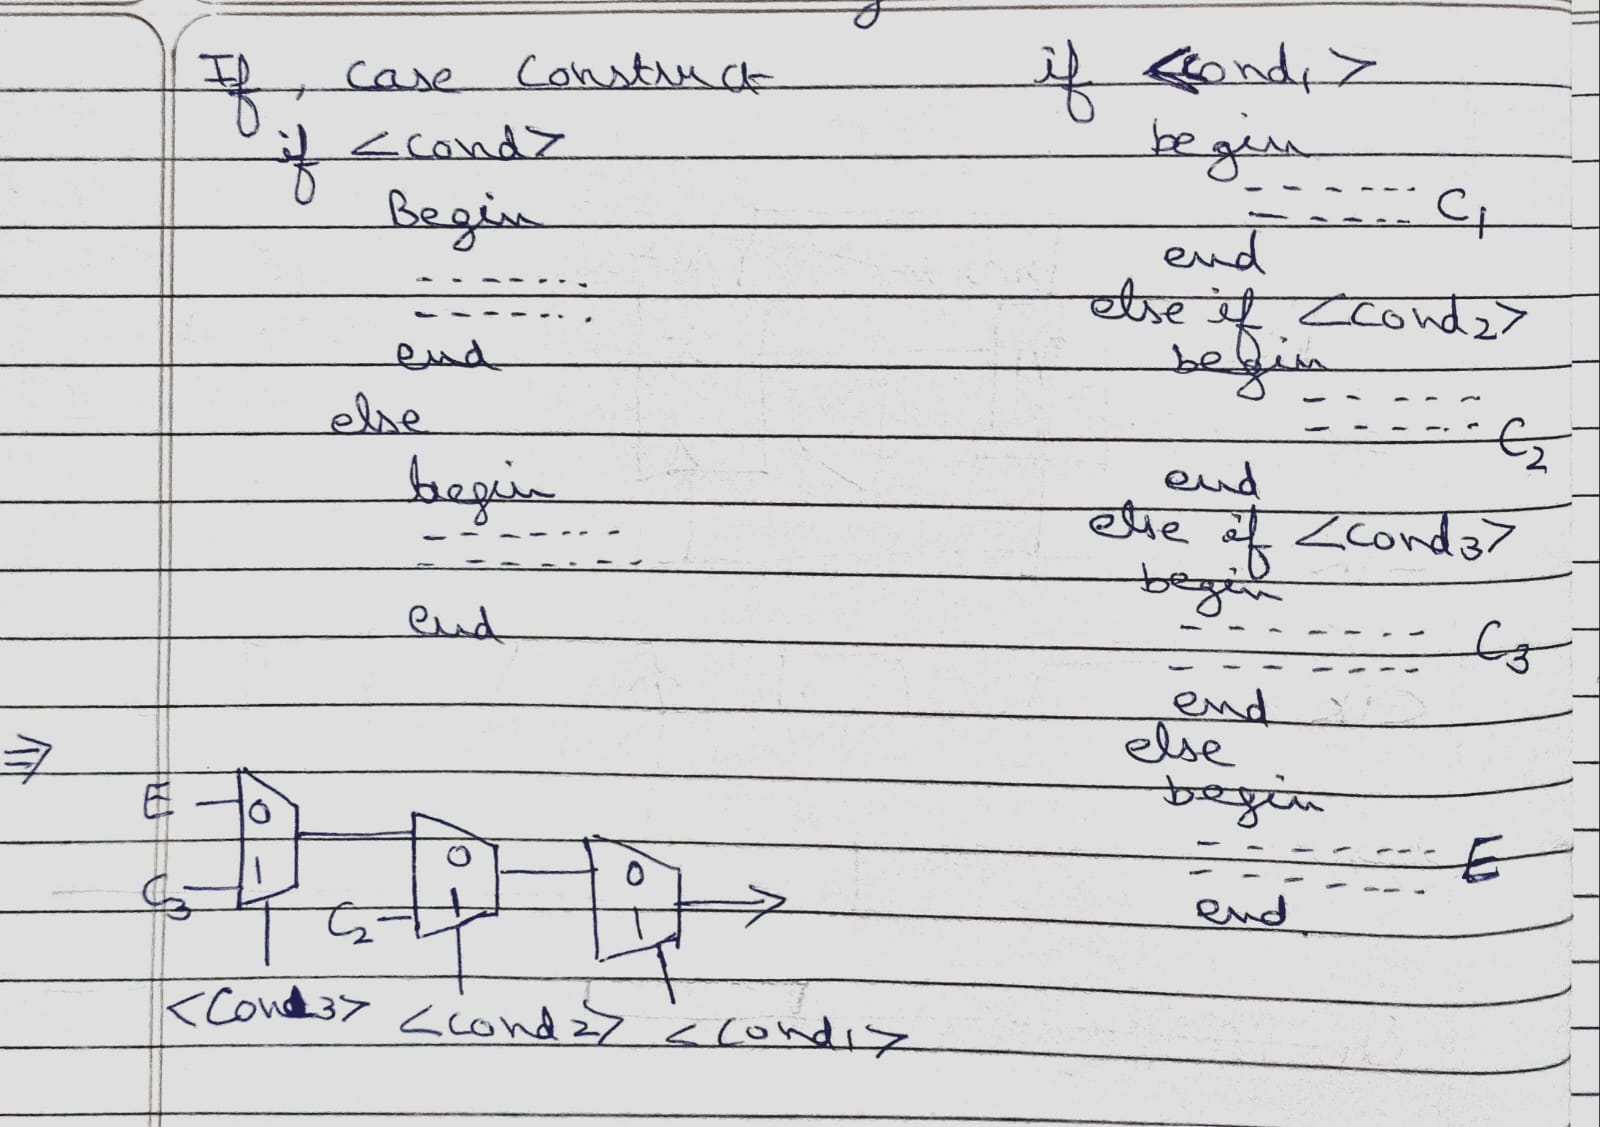 If, case Construct
if <cond>
Begin
------.
------.
end
else
begin
------
------
end
if <cond1>
begin
------
------ C1
end
else if <cond2>
begin
------
------ C2
end
else if <cond3>
begin
------ C3
------
end
else
begin
------ E
------
end.
⇒
E 0
C3 1
<Cond3>
0
C2 1
<cond2>
0
1
<cond1>